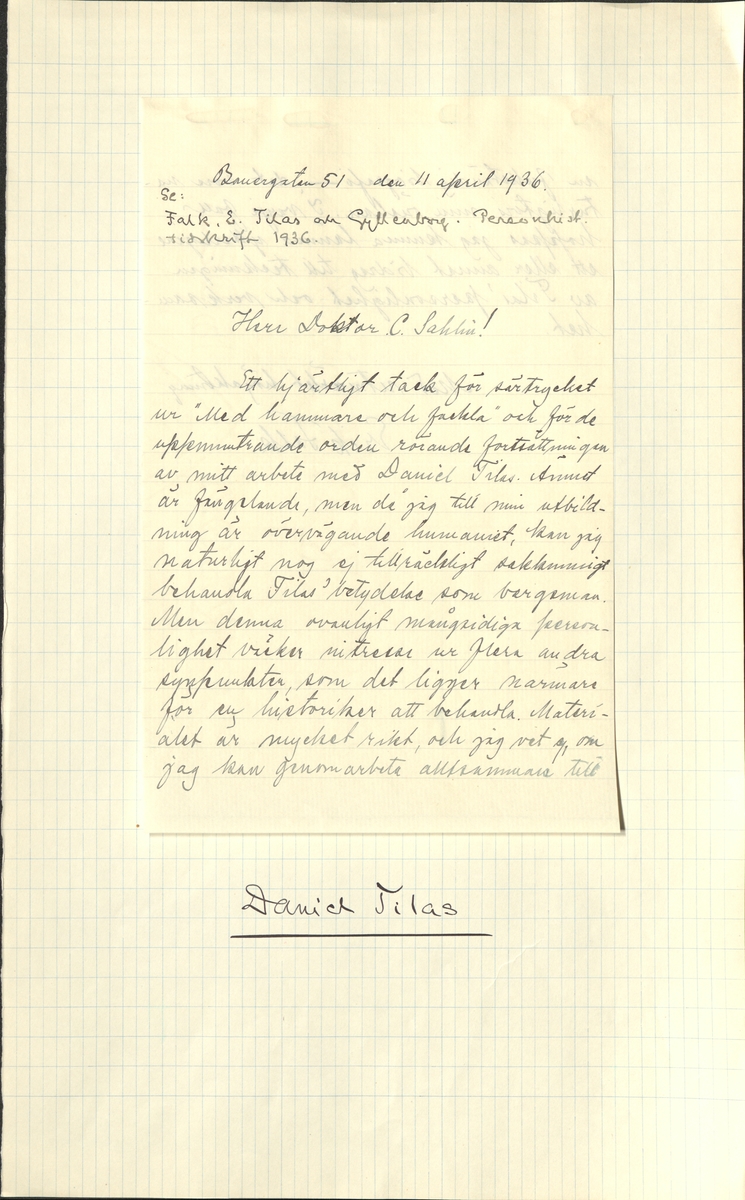 Bauergatan 51 den 11 april 1936.
Se:
Falk, E. Tilas och Gyllenborg. Personhist.
tidskrift 1936.
Herr Doktor C. Sahlin!
Ett hjärtligt tack för särtrycket
ur "Med hammare och fackla" och för de
uppmuntrande orden rörande fortsättningen
av mitt arbete med Daniel Tilas. Ämnet
är fängslande, men då jag till min utbild-
ning är övervägande humanist, kan jag
naturligt nog ej tillräckligt sakkunnigt
behandla Tilas' betydelse som bergsman.
Men denna ovanligt mångsidiga person-
lighet väcker intresse ur flera andra
synpunkter, som det ligger närmare
för en historiker att behandla. Materi-
alet är mycket rikt, och jag vet ej, om
jag kan genomarbeta alltsammans till
Daniel Tilas